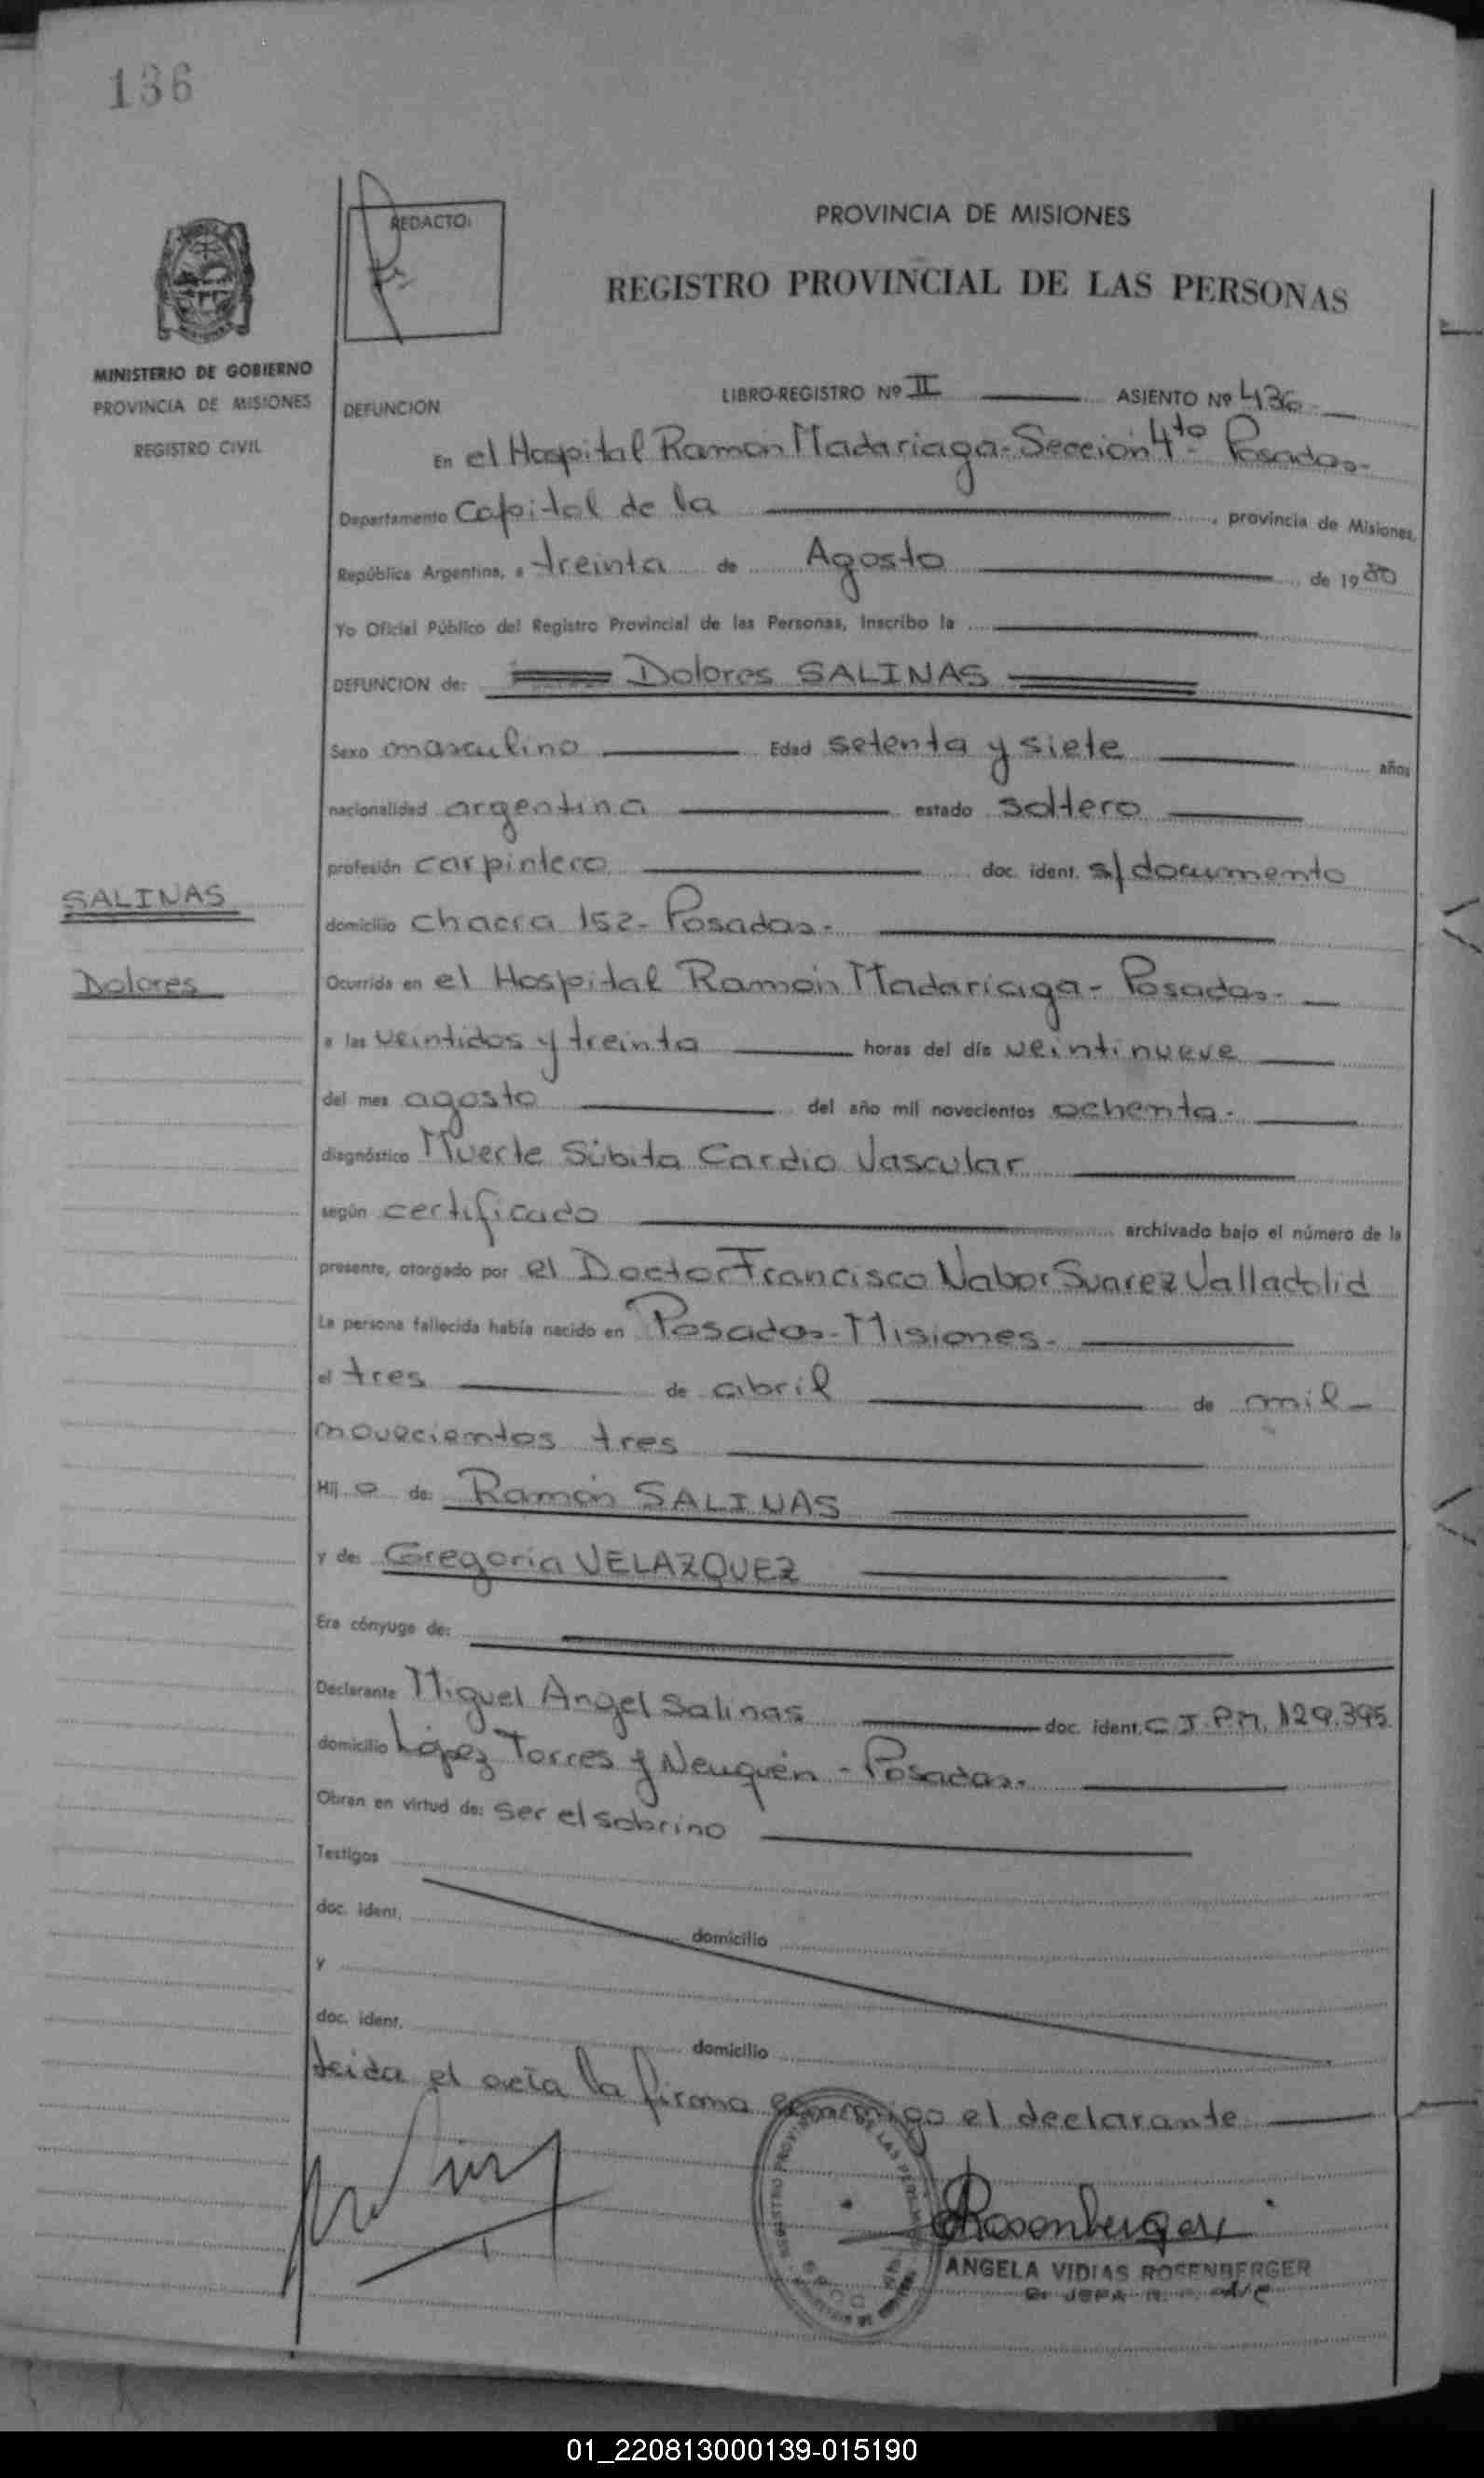 136
REDACTO:
PROVINCIA DE MISIONES
REGISTRO PROVINCIAL DE LAS PERSONAS
MINISTERIO DE GOBIERNO
PROVINCIA DE MISIONES
REGISTRO CIVIL
DEFUNCION
LIBRO-REGISTRO Nº II ASIENTO Nº 436
En el Hospital Ramón Madariaga-Sección 4to Posadas-
Departamento Capital de la , provincia de Misiones,
República Argentina, a treinta de Agosto de 1980
Yo Oficial Público del Registro Provincial de las Personas, Inscribo la
DEFUNCION de: Dolores SALINAS
Sexo masculino Edad setenta y siete años
nacionalidad argentina estado soltero
profesión carpintero doc. ident. s/documento
SALINAS
Dolores
domicilio chacra 152- Posadas-
Ocurrida en el Hospital Ramón Madariaga- Posadas-
a las veintidos y treinta horas del día veintinueve
del mes agosto del año mil novecientos ochenta-
diagnóstico Muerte Súbita Cardio Vascular
según certificado archivado bajo el número de la
presente, otorgado por el Doctor Francisco Nabor Suarez Valladolid
La persona fallecida había nacido en Posadas-Misiones-
el tres de abril de mil
novecientos tres
Hij o de: Ramón SALINAS
y de: Gregoria VELAZQUEZ
Era cónyuge de:
Declarante Miguel Angel Salinas doc. ident. C I. P.M. 129.395
domicilio López Torres y Neuquén - Posadas-
Obran en virtud de: ser el sobrino
Testigos
doc. ident. domicilio
y
doc. ident. domicilio
Leida el acta la firma conmigo el declarante
Rosenberger
ANGELA VIDIAS ROSENBERGER
01_220813000139-015190